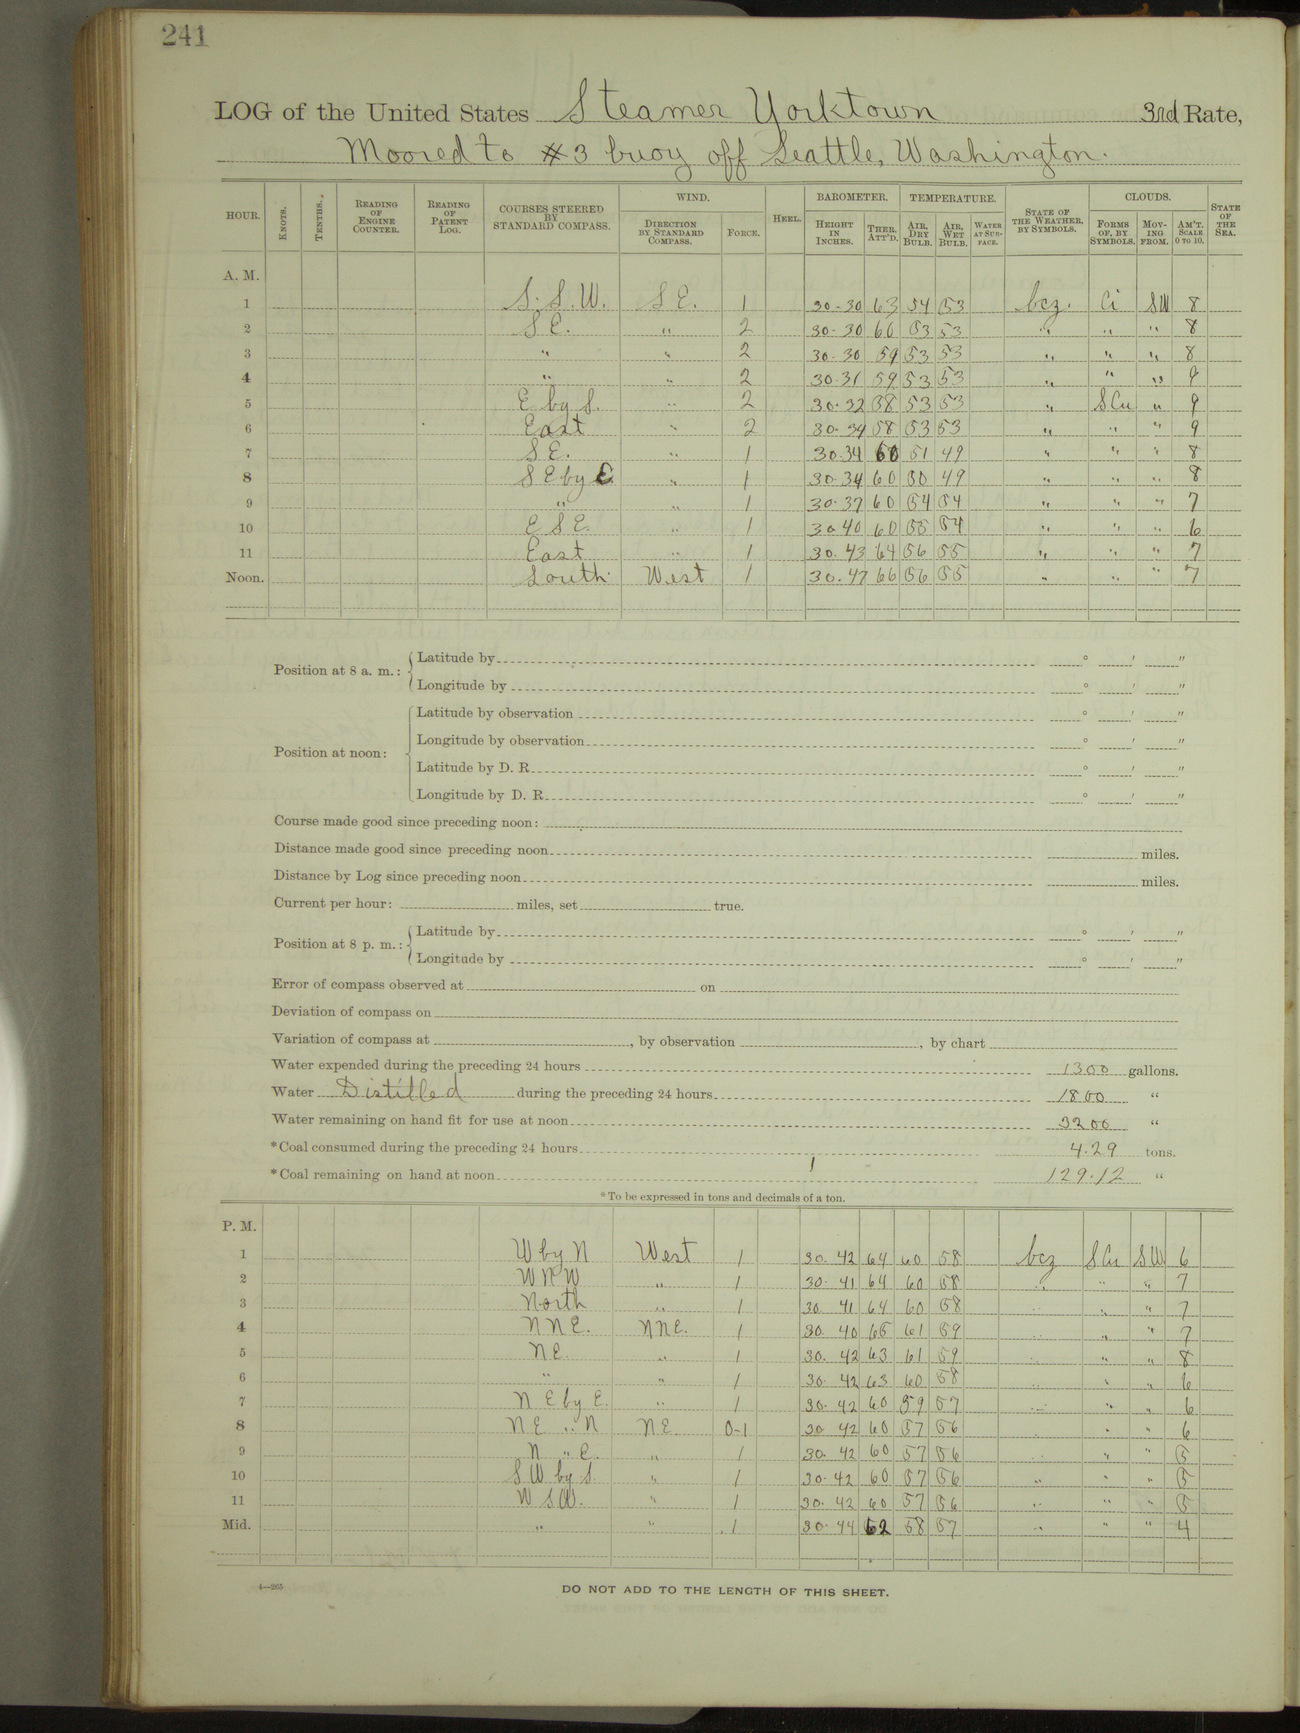 241
LOG of the United States Steamer Yorktown 3rd Rate,
Moored to #3 buoy off Seattle, Washington.
HOUR. KNOTS. TENTHS. READING OF ENGINE COUNTER. READING OF PATENT LOG. COURSES STEERED BY STANDARD COMPASS. WIND. DIRECTION BY STANDARD COMPASS. FORCE. HEEL. BAROMETER. HEIGHT IN INCHES. THER. ATT'D. TEMPERATURE. AIR, DRY BULB. AIR, WET BULB. WATER AT SURFACE. STATE OF THE WEATHER, BY SYMBOLS. CLOUDS. FORMS OF, BY SYMBOLS. MOVING FROM. AM'T. SCALE 0 TO 10. STATE OF THE SEA.
A. M.
1 S. S. W. S E. 1 30-30 63 54 53 bcz. Ci SW 8
2 S E. " 2 30-30 60 53 53 " " " 8
3 " " 2 30-30 59 53 53 " " " 8
4 " " 2 30.31 59 53 53 " " " 9
5 E by S. " 2 30.32 58 53 53 " S Cu " 9
6 East " 2 30.34 58 53 53 " " " 9
7 S E. " 1 30.34 60 51 49 " " " 8
8 S E by E " 1 30.34 60 50 49 " " " 8
9 " " 1 30.37 60 54 54 " " " 7
10 E S E. " 1 30.40 60 55 54 " " " 6
11 East " 1 30.43 64 56 55 " " " 7
Noon. South West 1 30.47 66 56 55 " " " 7
Position at 8 a. m.: Latitude by ° ′ ″
Longitude by ° ′ ″
Position at noon: Latitude by observation ° ′ ″
Longitude by observation ° ′ ″
Latitude by D. R. ° ′ ″
Longitude by D. R. ° ′ ″
Course made good since preceding noon:
Distance made good since preceding noon miles.
Distance by Log since preceding noon miles.
Current per hour: miles, set true.
Position at 8 p. m.: Latitude by ° ′ ″
Longitude by ° ′ ″
Error of compass observed at on
Deviation of compass on
Variation of compass at , by observation , by chart
Water expended during the preceding 24 hours 1300 gallons.
Water Distilled during the preceding 24 hours 1800 "
Water remaining on hand fit for use at noon 3200 "
*Coal consumed during the preceding 24 hours 4.29 tons.
*Coal remaining on hand at noon 129.12 "
*To be expressed in tons and decimals of a ton.
P. M.
1 W by N West 1 30. 42 64 60 58 bcz S Cu S W 6
2 W N W " 1 30. 41 64 60 58 " " " 7
3 North " 1 30. 41 64 60 58 " " " 7
4 N N E. N N E. 1 30. 40 65 61 59 " " " 7
5 N E. " 1 30. 42 63 61 59 " " " 8
6 " " 1 30. 42 63 60 58 " " " 6
7 N E by E. " 1 30. 42 60 59 57 " " " 6
8 N E " N N E. 0-1 30 42 60 57 56 " " " 6
9 N " E. " 1 30. 42 60 57 56 " " " 5
10 S W by S. " 1 30. 42 60 57 56 " " " 5
11 W S W. " 1 30. 42 60 57 56 " " " 5
Mid. " " 1 30. 44 62 58 57 " " " 4
4—265
DO NOT ADD TO THE LENGTH OF THIS SHEET.